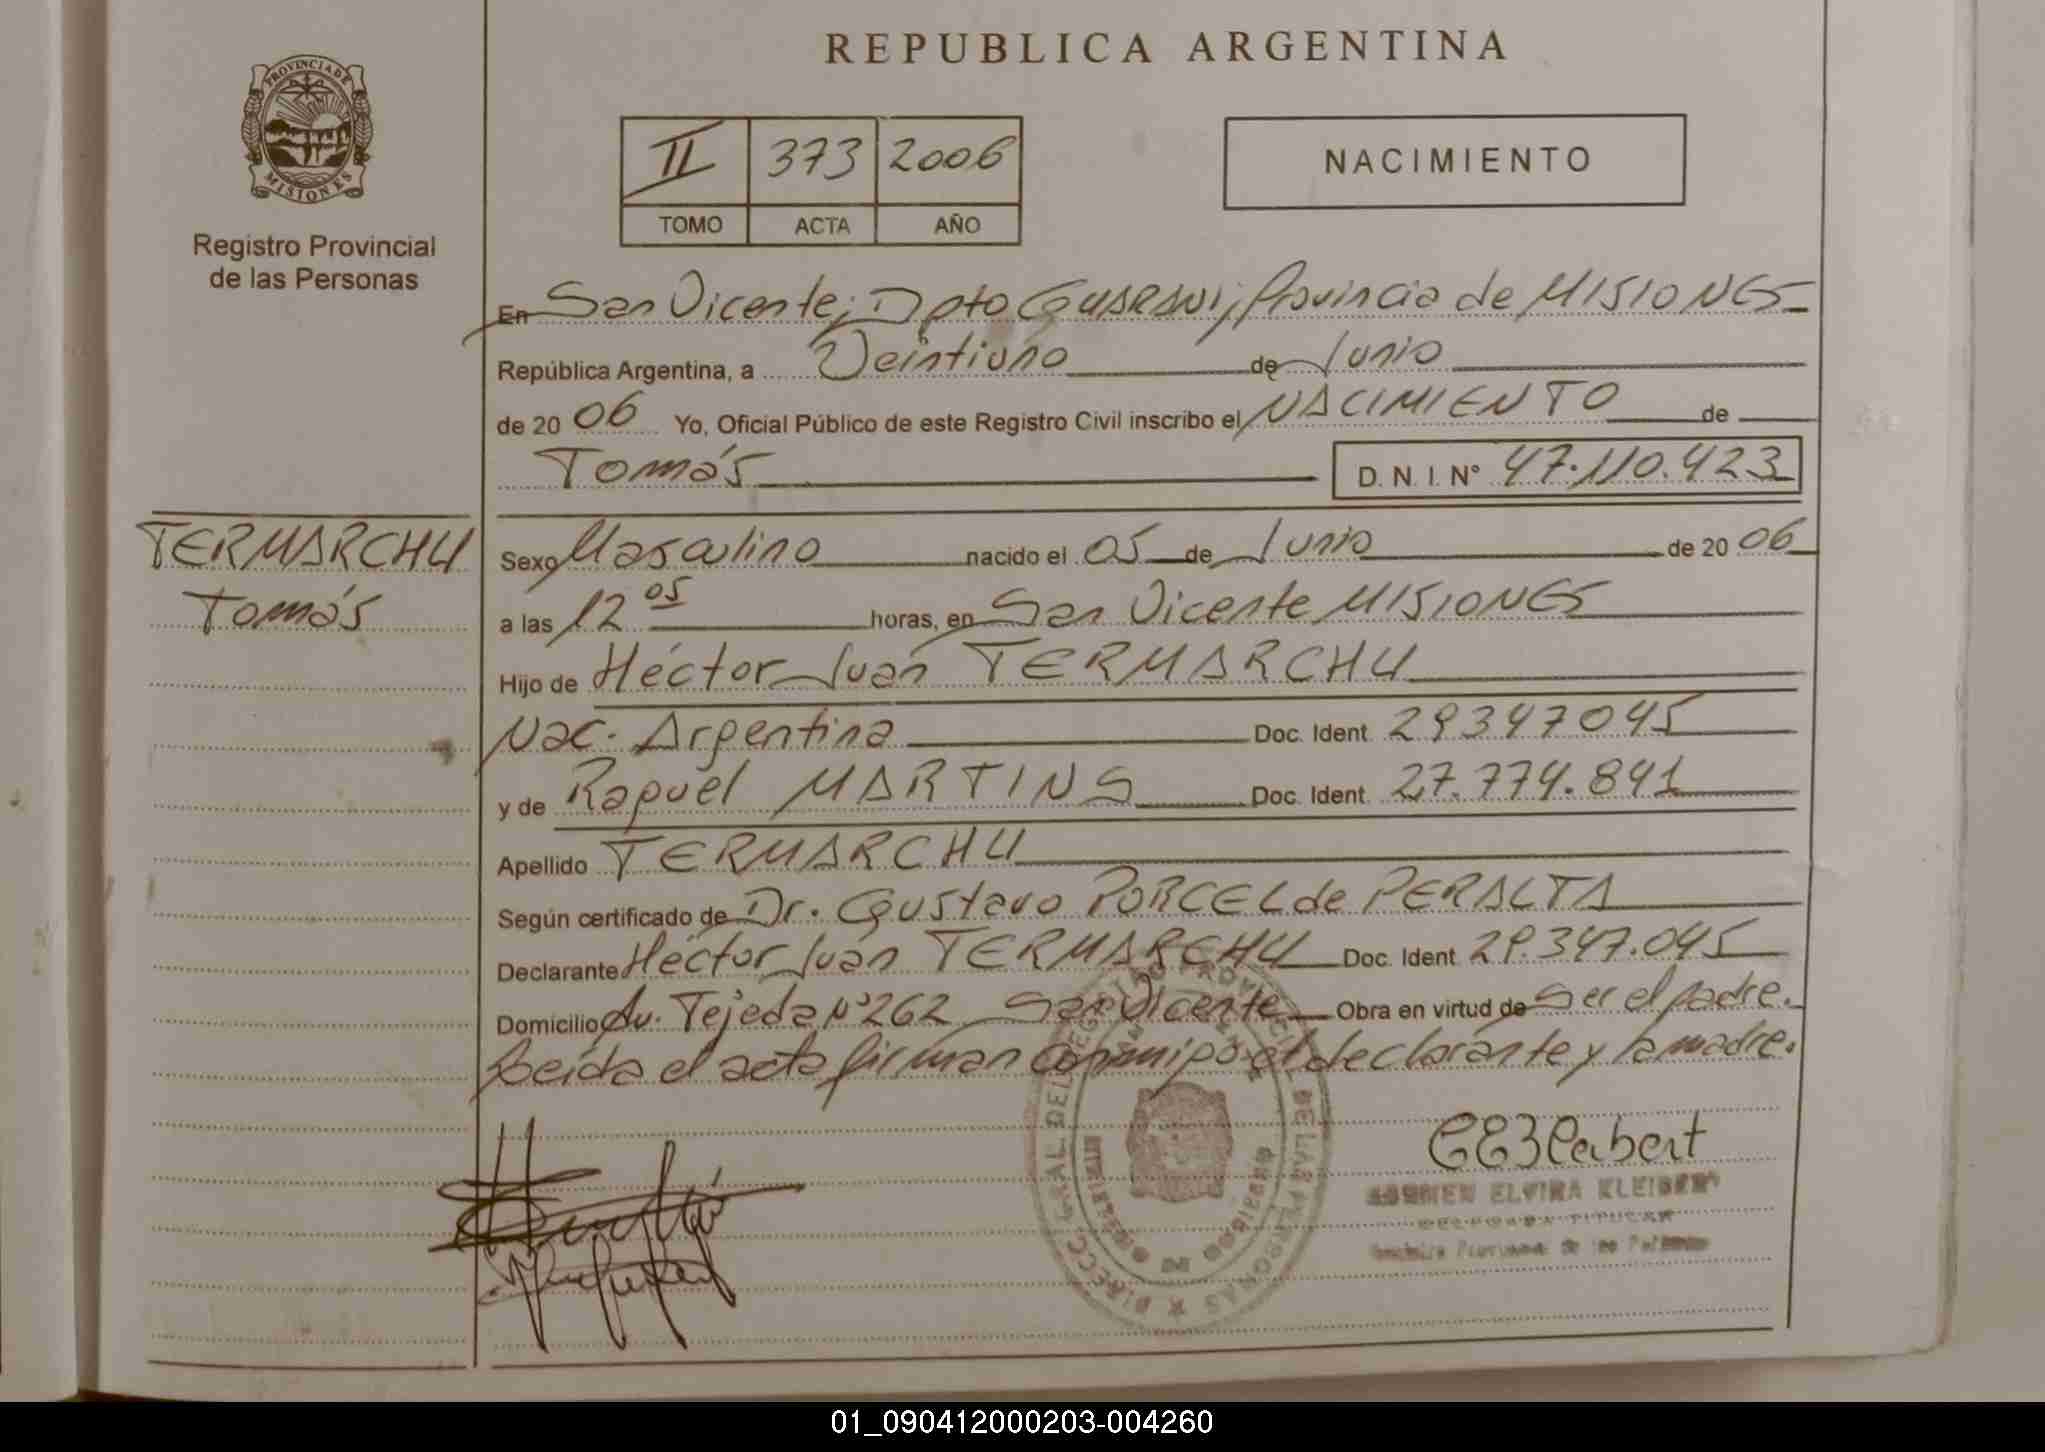 REPUBLICA ARGENTINA
PROVINCIA DE MISIONES
Registro Provincial
de las Personas
II 373 2006
TOMO ACTA AÑO
NACIMIENTO
En San Vicente; Dpto Guarani, Provincia de MISIONES
República Argentina, a Veintiuno de Junio
de 2006 Yo, Oficial Público de este Registro Civil inscribo el NACIMIENTO de
Tomás D. N. I. N° 47.110.423
TERMARCHU
Tomás
Sexo Masculino nacido el 05 de Junio de 2006
a las 12 05 horas, en San Vicente MISIONES
Hijo de Héctor Juan TERMARCHU
Nac. Argentina Doc. Ident. 29347045
y de Raquel MARTINS Doc. Ident. 27.774.841
Apellido TERMARCHU
Según certificado de Dr. Gustavo PORCEL de PERALTA
Declarante Héctor Juan TERMARCHU Doc. Ident. 29.347.045
Domicilio Av. Tejeda N°262 San Vicente Obra en virtud de Ser el padre.
Leída el acta firman conmigo el declarante y la madre.
ELVIRA KLEIBERT
01_090412000203-004260